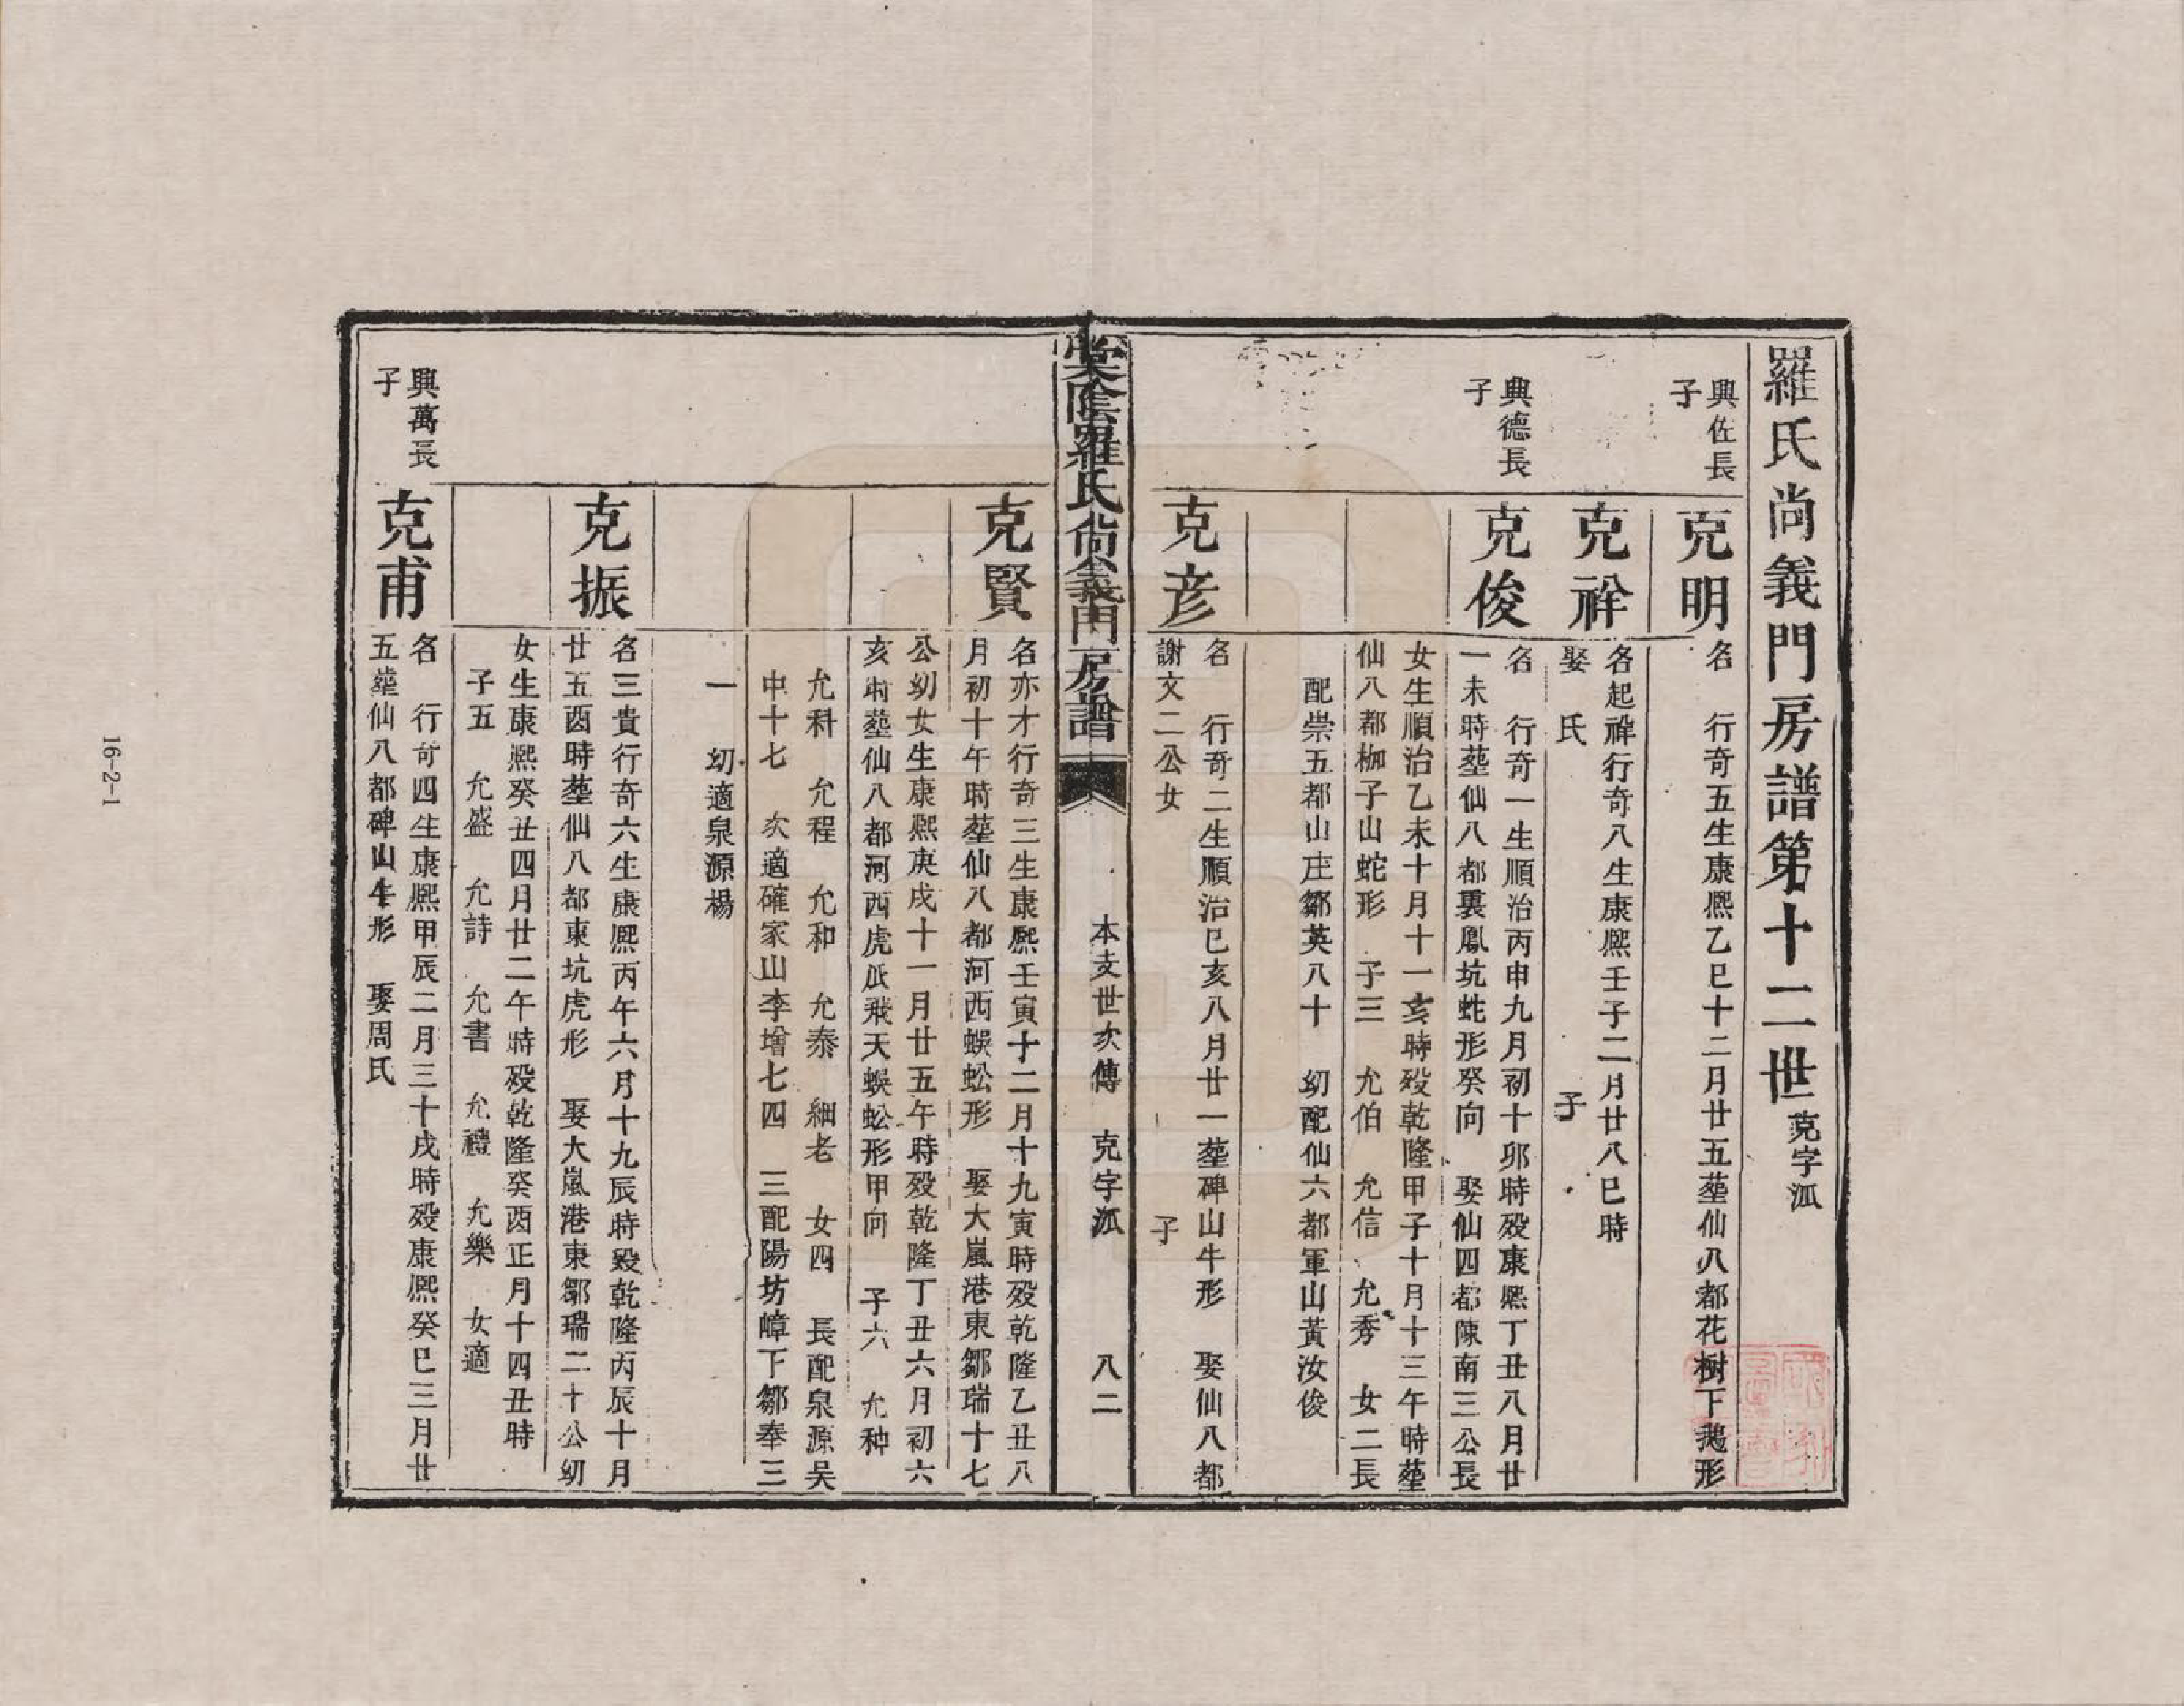 羅氏尚義門房譜第十二世 克字派
興佐長子
克明
名 行奇五生康熙乙巳十二月廿五塟仙八都花樹下鵝形
克祥
名起祥行奇八生康熙壬子二月廿八巳時
娶 氏 子
興德長子
克俊
名 行奇一生順治丙申九月初十卯時歿康熙丁丑八月廿
一未時塟仙八都裏鳳坑蛇形癸向 娶仙四都陳南三公長
女生順治乙未十月十一亥時歿乾隆甲子十月十三午時塟
仙八都枷子山蛇形 子三 允伯 允信 允秀 女二長
配崇五都山庄鄒英八十 幼配仙六都軍山黃汝俊
克彦
名 行奇二生順治己亥八月廿一塟碑山牛形 娶仙八都
謝文二公女 子
棠陰羅氏尙義門房譜
本支世次傳 克字派 八二
克賢
名亦才行奇三生康熙壬寅十二月十九寅時歿乾隆乙丑八
月初十午時塟仙八都河西蜈蚣形 娶大嵐港東鄒瑞十七
公幼女生康熙庚戌十一月廿五午時歿乾隆丁丑六月初六
亥時塟仙八都河西虎瓜飛天蜈蚣形甲向 子六 允种
允科 允程 允和 允泰 細老 女四 長配泉源吴
申十七 次適確家山李增七四 三配陽坊嶂下鄒奉三
一 幼適泉源楊
克振
名三貴行奇六生康熙丙午六月十九辰時歿乾隆丙辰十月
廿五酉時塟仙八都東坑虎形 娶大嵐港東鄒瑞二十公幼
女生康熙癸丑四月廿二午時歿乾隆癸酉正月十四丑時
子五 允盛 允詩 允書 允禮 允樂 女適
興萬長子
克甫
名 行奇四生康熙甲辰二月三十戌時歿康熙癸巳三月廿
五塟仙八都碑山牛形 娶周氏
16-2-1